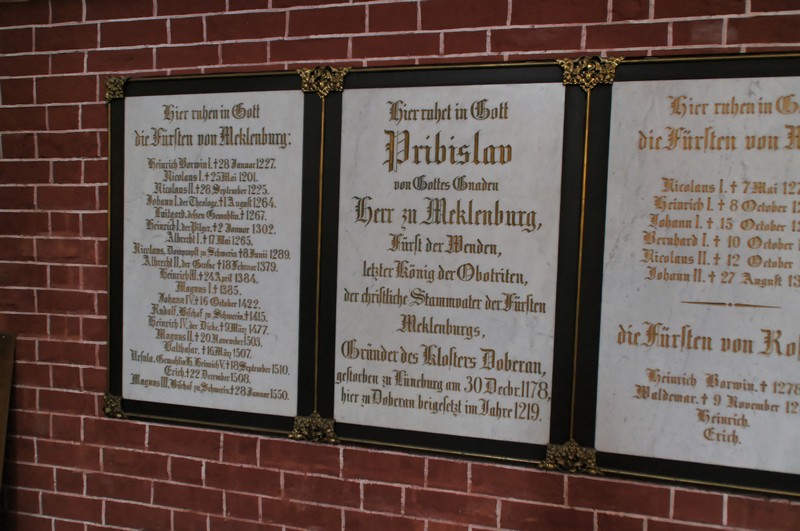 Hier ruhen in Gott
die Fürsten von Meklenburg:
Heinrich Borwin I. † 28 Januar 1227.
Nicolaus I. † 25 Mai 1201.
Nicolaus II. † 28 September 1225.
Johann I. der Theologe. † 1 August 1264.
Luitgard, dessen Gemahlin. † 1267.
Heinrich I. der Pilger. † 2 Januar 1302.
Albrecht I. † 17 Mai 1265.
Nicolaus, Dompropst zu Schwerin † 8 Junii 1289.
Albrecht II. der Große † 18 Februar 1379.
Heinrich III. † 24 April 1384.
Magnus I. † 1385.
Johann IV. † 16 October 1422.
Rudolf, Bischof zu Schwerin † 1415.
Heinrich IV. der Dicke. † 9 März 1477.
Magnus II. † 20 November 1503.
Balthasar. † 16 März 1507.
Ursula, Gemahlin H. Heinrich V. † 18 September 1510.
Erich. † 22 December 1508.
Magnus III. Bischof zu Schwerin † 28 Januar 1550.
Hier ruhet in Gott
Pribislav
von Gottes Gnaden
Herr zu Meklenburg,
Fürst der Wenden,
letzter König der Obotriten,
der christliche Stammvater der Fürsten
Meklenburgs,
Gründer des Klosters Doberan,
gestorben zu Lüneburg am 30 Decbr. 1178,
hier zu Doberan beigesetzt im Jahre 1219.
Hier ruhen in
die Fürsten von
Nicolaus I. † 7 Mai
Heinrich I. † 8 October
Johann I. † 15 October
Bernhard I. † 10 October
Nicolaus II. † 12 October
Johann II. † 27 August
die Fürsten von
Heinrich Borwin. † 1278
Waldemar. † 9 November
Heinrich.
Erich.